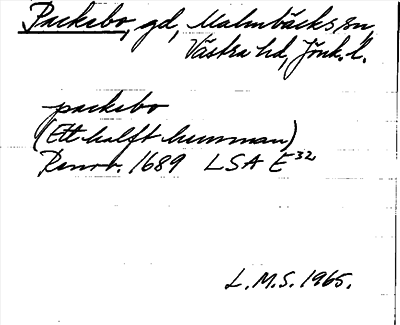 Packebo, gd, Malmbäcks sn,
Västra hd, Jönk. l.
packebo
(Ett halft hemman)
Renov. 1689 LSA E 32
L.M.S. 1965.